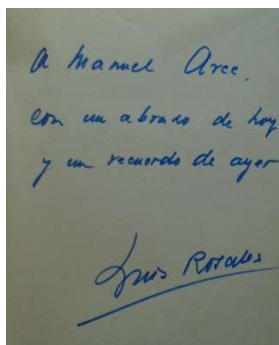 A Manuel Arce.
con un abrazo de hoy
y un recuerdo de ayer
Luis Rosales